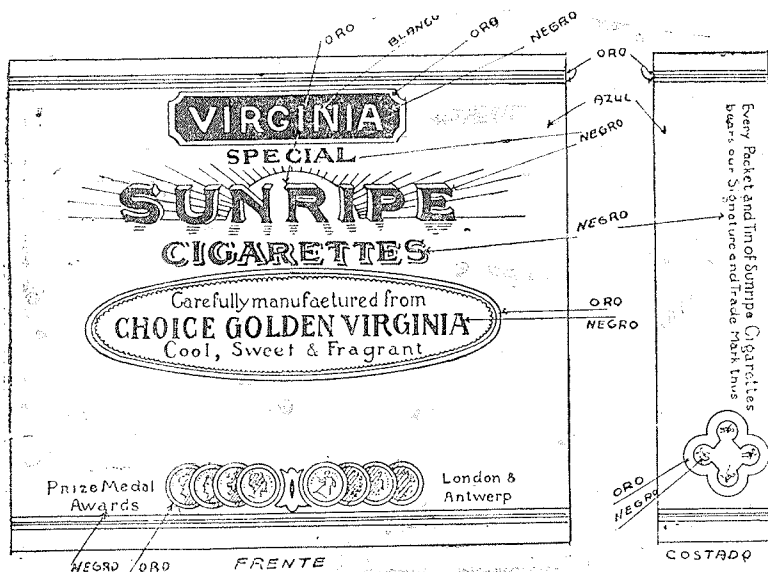 ORO
BLANCO
ORO
NEGRO
ORO
AZUL
NEGRO
NEGRO
ORO
NEGRO
VIRGINIA
SPECIAL
SUNRIPE
CIGARETTES
Carefully manufactured from
CHOICE GOLDEN VIRGINIA
Cool, Sweet & Fragrant
Prize Medal
Awards
London &
Antwerp
NEGRO
ORO
FRENTE
Every Packet and Tin of Sunripe Cigarettes
bears our Signature and Trade Mark thus
ORO
NEGRO
COSTADO